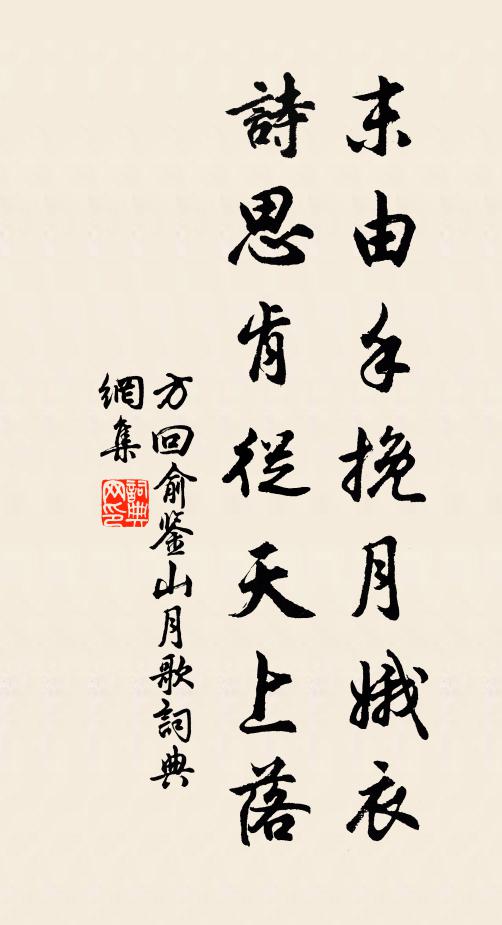 未由手挽月娥衣
詩思肯從天上落
方回俞鉴山月歌詞典
網集
詞典
网印